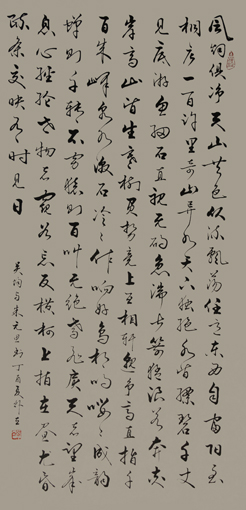 風烟俱净天山共色從流飄蕩任意東西自富陽至
桐廬一百許里奇山異水天下獨絶水皆縹碧千丈
見底游魚細石直視無礙急湍甚箭猛浪若奔夾
岸高山皆生寒樹負勢競上互相軒邈爭高直指千
百成峰泉水激石泠泠作響好鳥相鳴嚶嚶成韻
蟬則千轉不窮猿則百叫無絶鳶飛戾天者望峰
息心經綸世務者窺谷忘反橫柯上蔽在晝猶昏
疏條交映有時見日
吴均与朱元思书丁酉夏